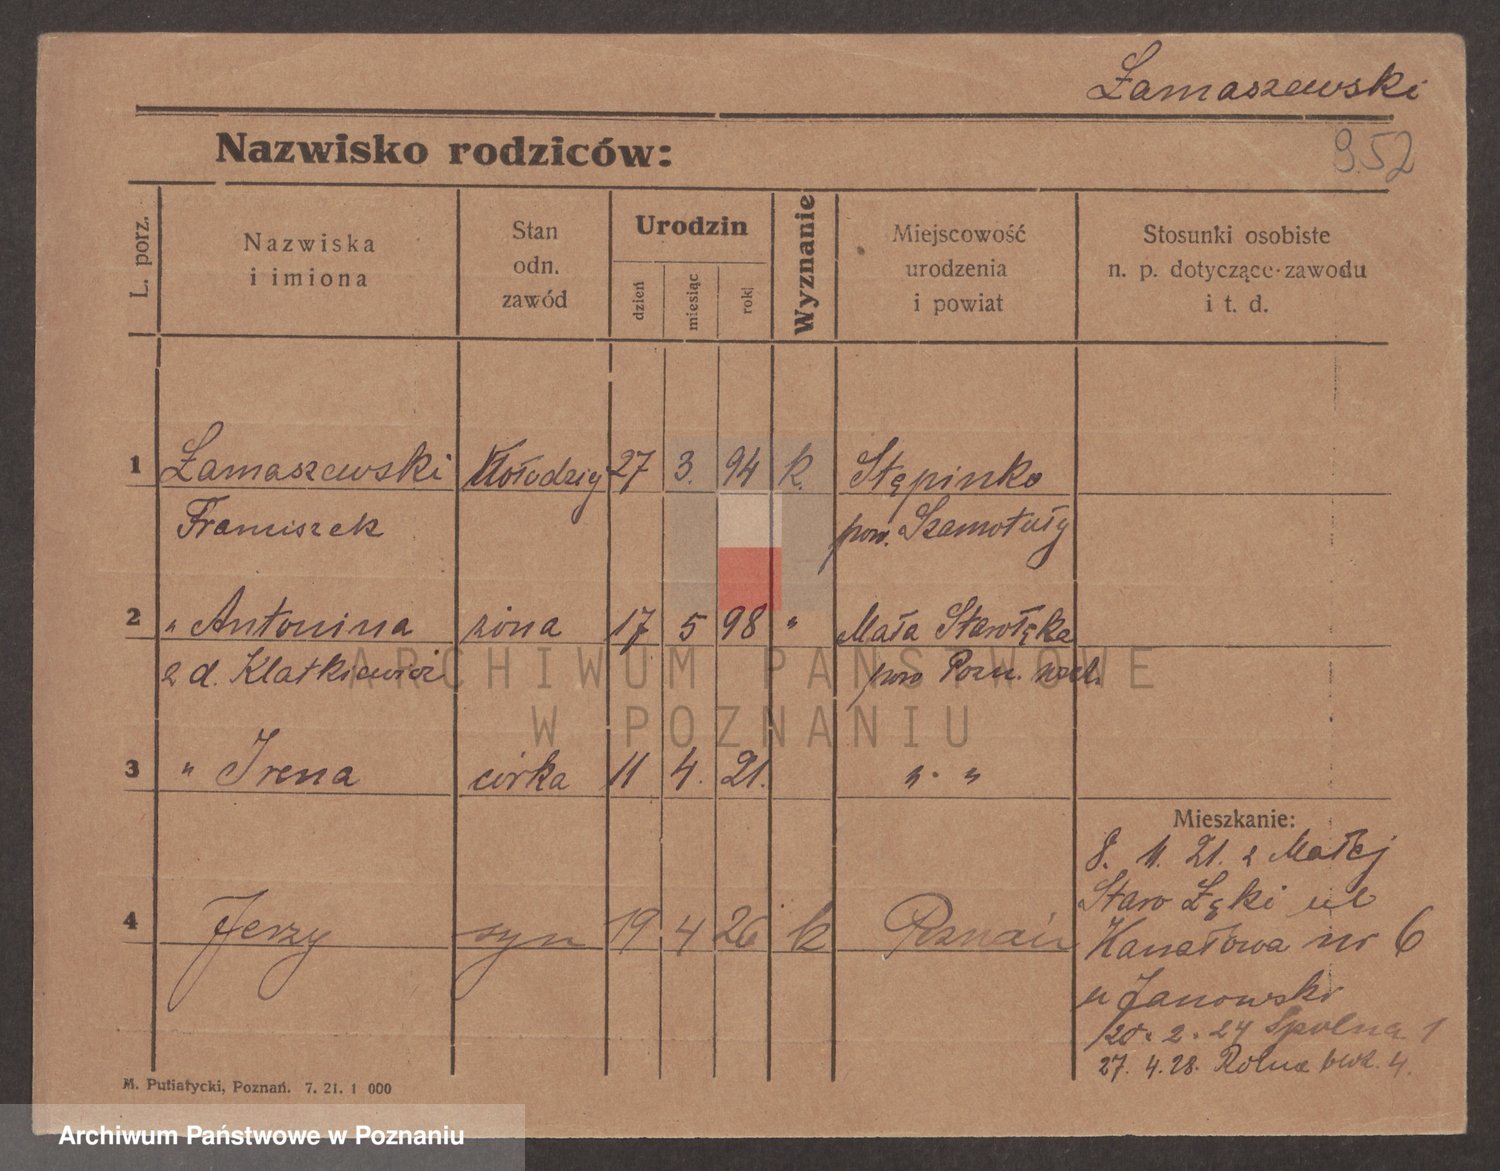 Łamaszewski
952
Nazwisko rodziców:
L. porz.
Nazwiska
i imiona
Stan
odn.
zawód
Urodzin
dzień
miesiąc
rok
Wyznanie
Miejscowość
urodzenia
i powiat
Stosunki osobiste
n. p. dotyczące zawodu
i t. d.
1 Łamaszewski Kołodziej 27 3. 94 k. Stępinko
Franciszek pow. Szamotuły
2 " Antonina żona 17 5 98 " Mała Starołęka
z d. Klatkiewicz pow Pozn. wsch.
3 " Irena córka 11 4. 21. " . "
Mieszkanie:
8. 11. 21. z Małej
Staro Łęki ul
4 Jerzy syn 19 4 26 k Poznań
Kanałowa nr 6
u Janowski
20. 2. 24 Spólna 1
27. 4. 28. Rolna 4.
M. Putiatycki, Poznań. 7. 21. 1 000
ARCHIWUM PAŃSTWOWE
W POZNANIU
Archiwum Państwowe w Poznaniu